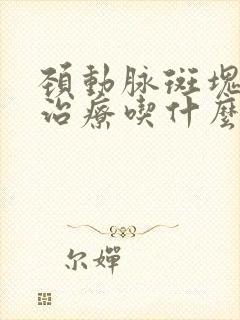 頚動脉斑塊
治療喫什麼
尔嬋